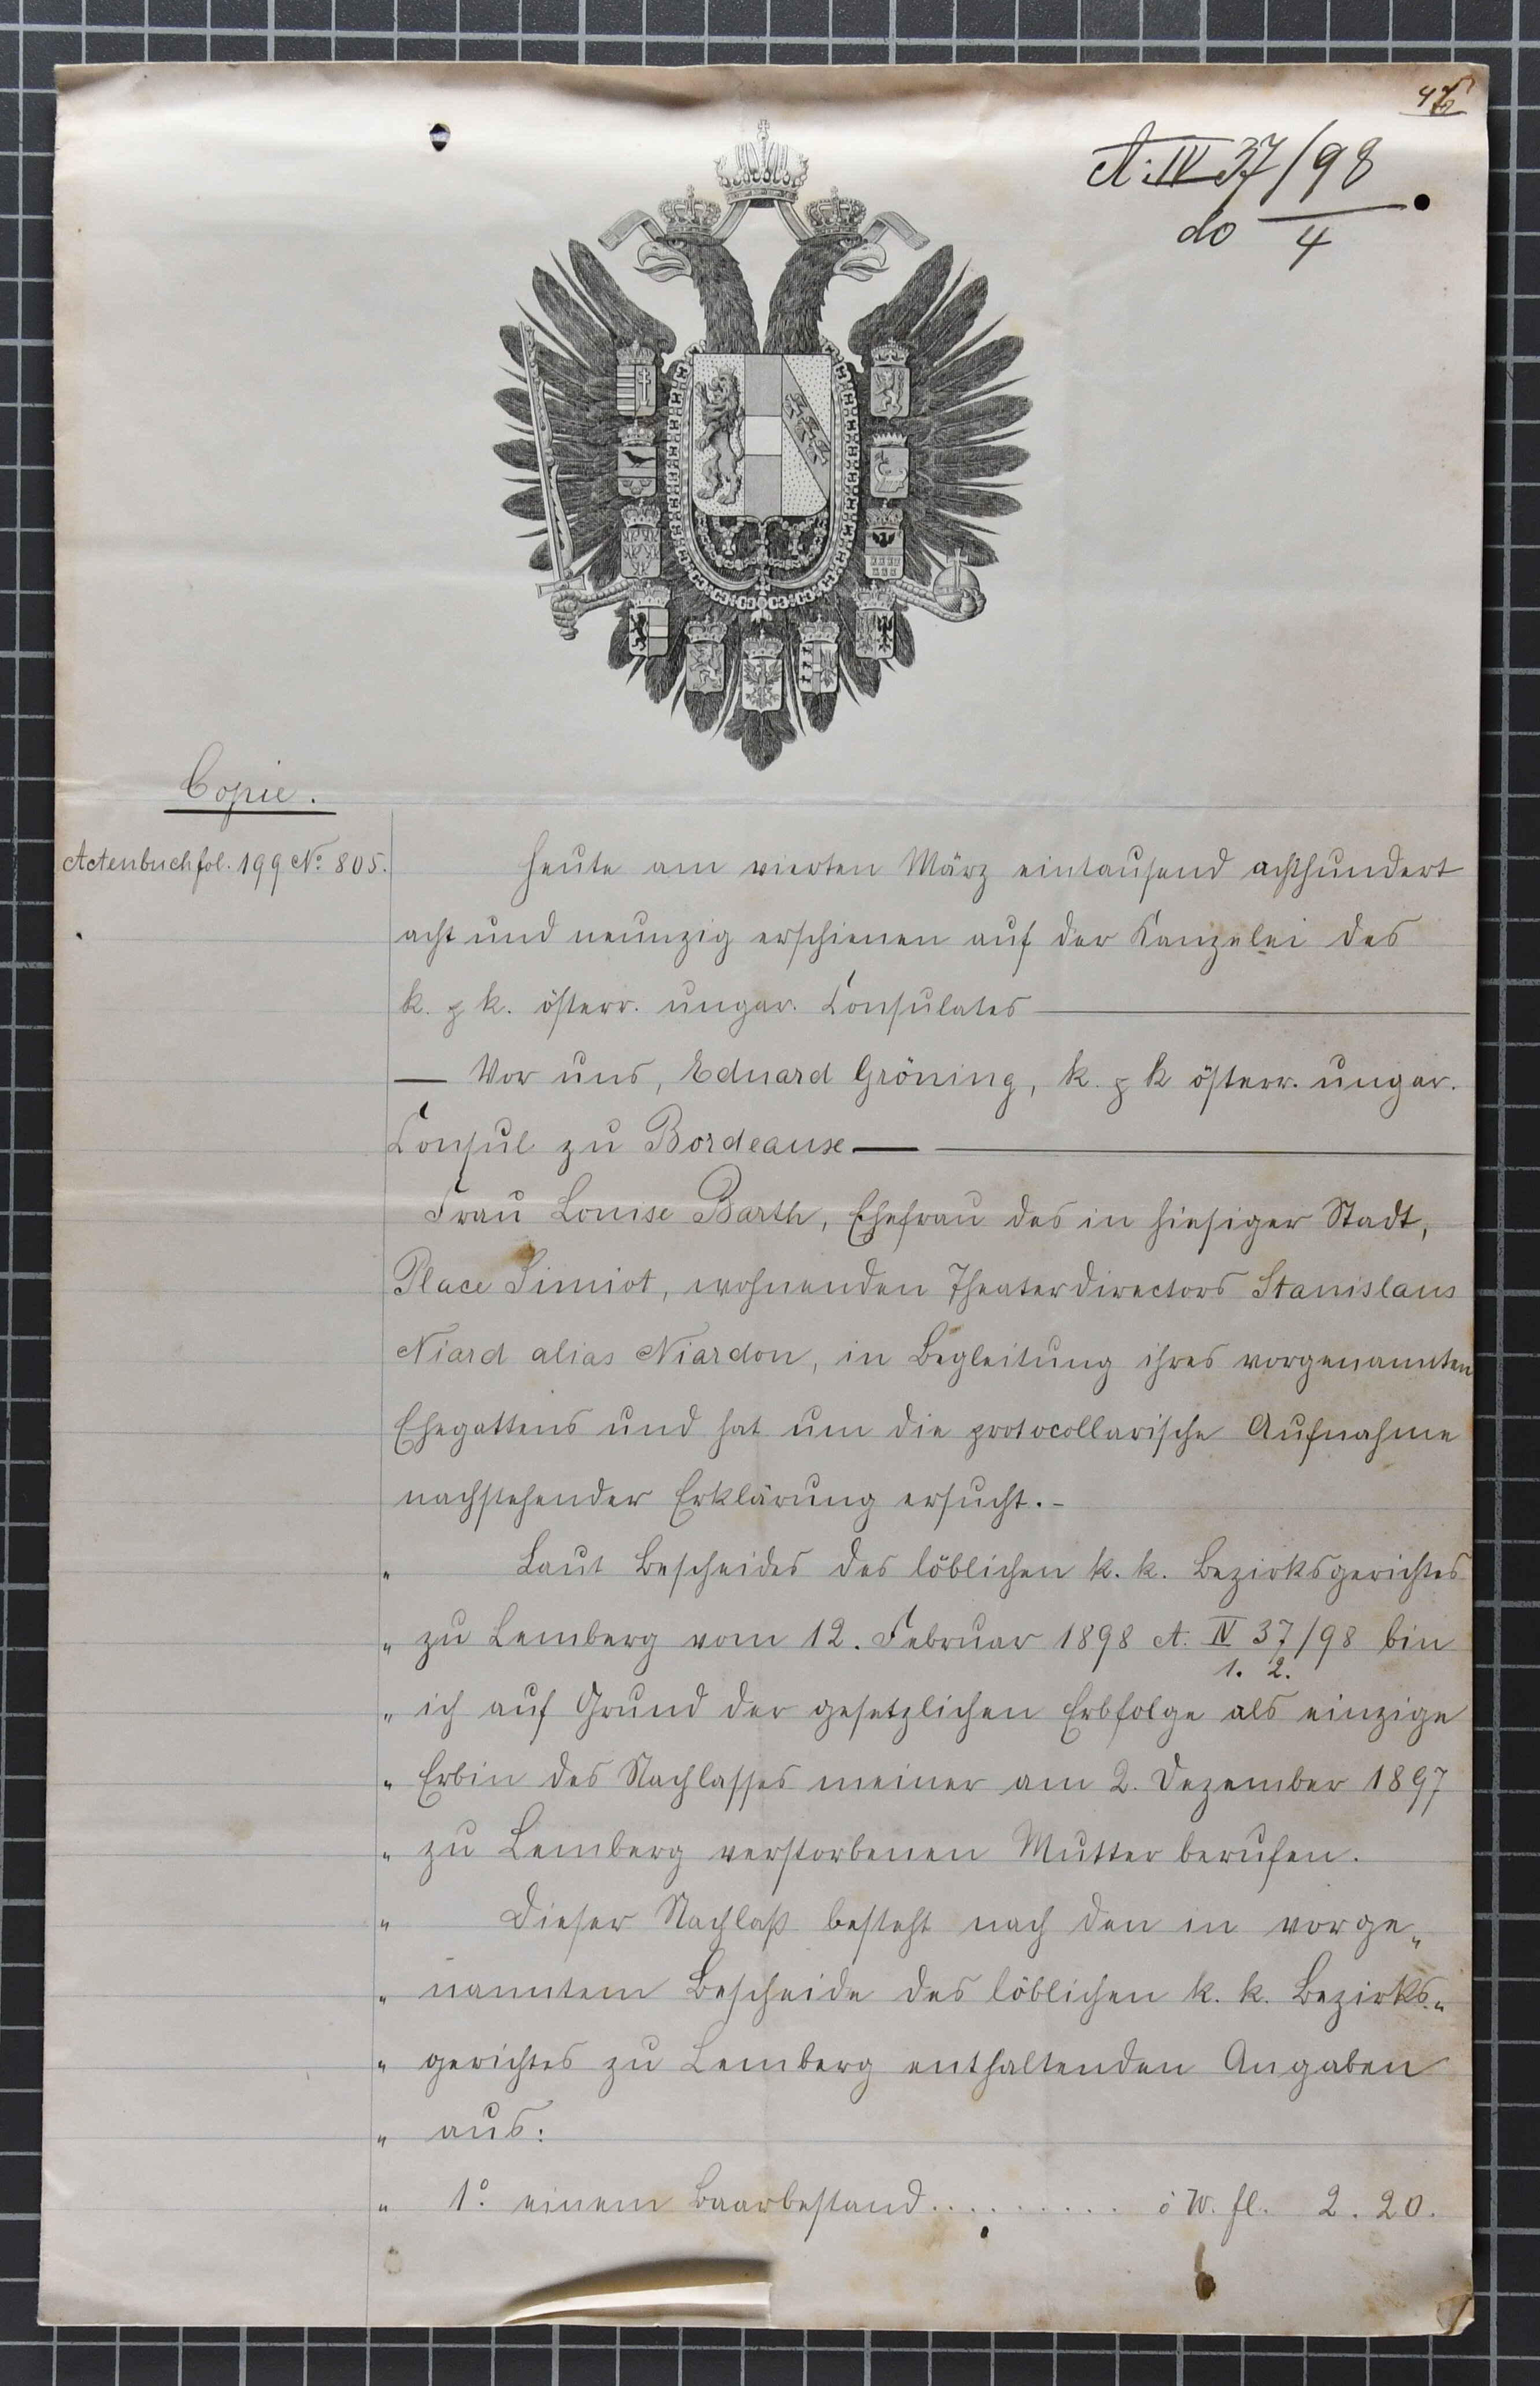 A: IV 37/98
do 4
Copie.
Actenbuch fol. 199 No. 805.
Heute am vierten März eintausend achthundert
acht und neunzig erschienen auf der Kanzelei des
k. & k. österr. ungar. Consulates
Vor uns, Eduard Gröning, k. & k österr. ungar.
Consul zu Bordeaux
Frau Louise Barth, Ehefrau des in hiesiger Stadt,
Place Simiot, wohnenden Theaterdirectors Stanislaus
Niard alias Niardon, in Begleitung ihres vorgenannten
Ehegattens und hat um die protocollarische Aufnahme
nachstehender Erklärung ersucht.-
" Laut Bescheides des löblichen k. k. Bezirksgerichtes
" zu Lemberg vom 12. Februar 1898 A. IV 37/98 bin
1. 2.
" ich auf Grund der gesetzlichen Erbfolge als einzige
" Erbin des Nachlasses meiner am 2. Dezember 1897
" zu Lemberg verstorbenen Mutter berufen.
" Dieser Nachlaß besteht nach den in vorge„
" nanntem Bescheide des löblichen k. k. Bezirks„
" gerichtes zu Lemberg enthaltenden Angaben
" aus:
" 1º. einem Baarbestand.......... ö W. fl. 2. 20.